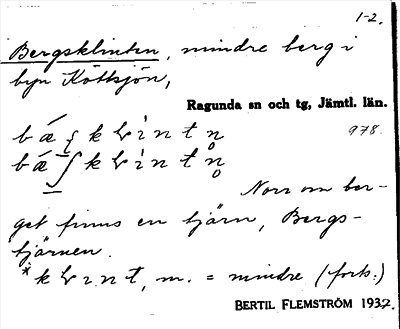 1-2.
Bergsklinten, mindre berg i
byn Köttsjön,
Ragunda sn och tg, Jämtl. län.
978.
Norr om ber-
get finns en tjärn, Bergs-
tjärnen.
m. = mindre (forts.)
BERTIL FLEMSTRÖM 1932.